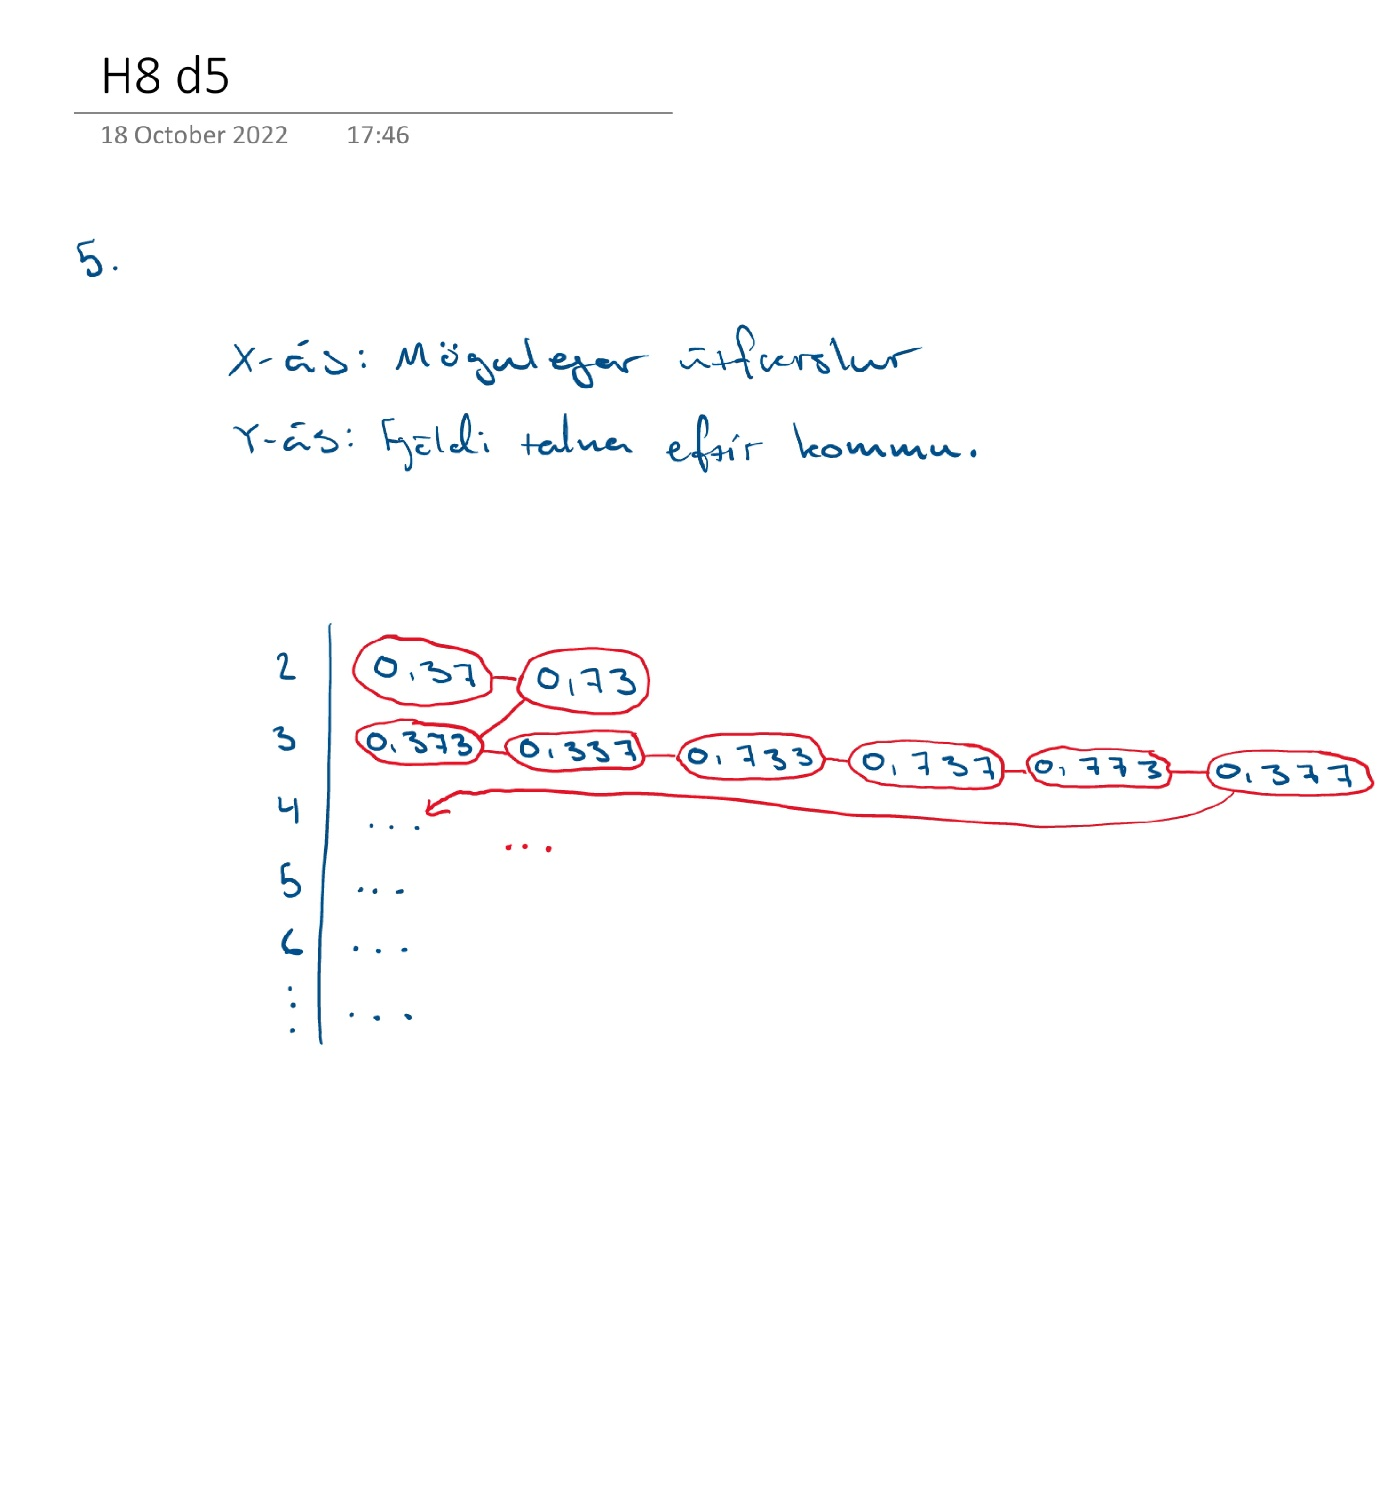 H8 d5
18 October 2022 17:46
5.
X-ás: Mögulegar útfærslur
Y-ás: Fjöldi talna eftir kommu.
2 0,37 0,73
3 0,373 0,337 0,733 0,737 0,773 0,377
4 ...
...
5 ...
6 ...
⋮ ...